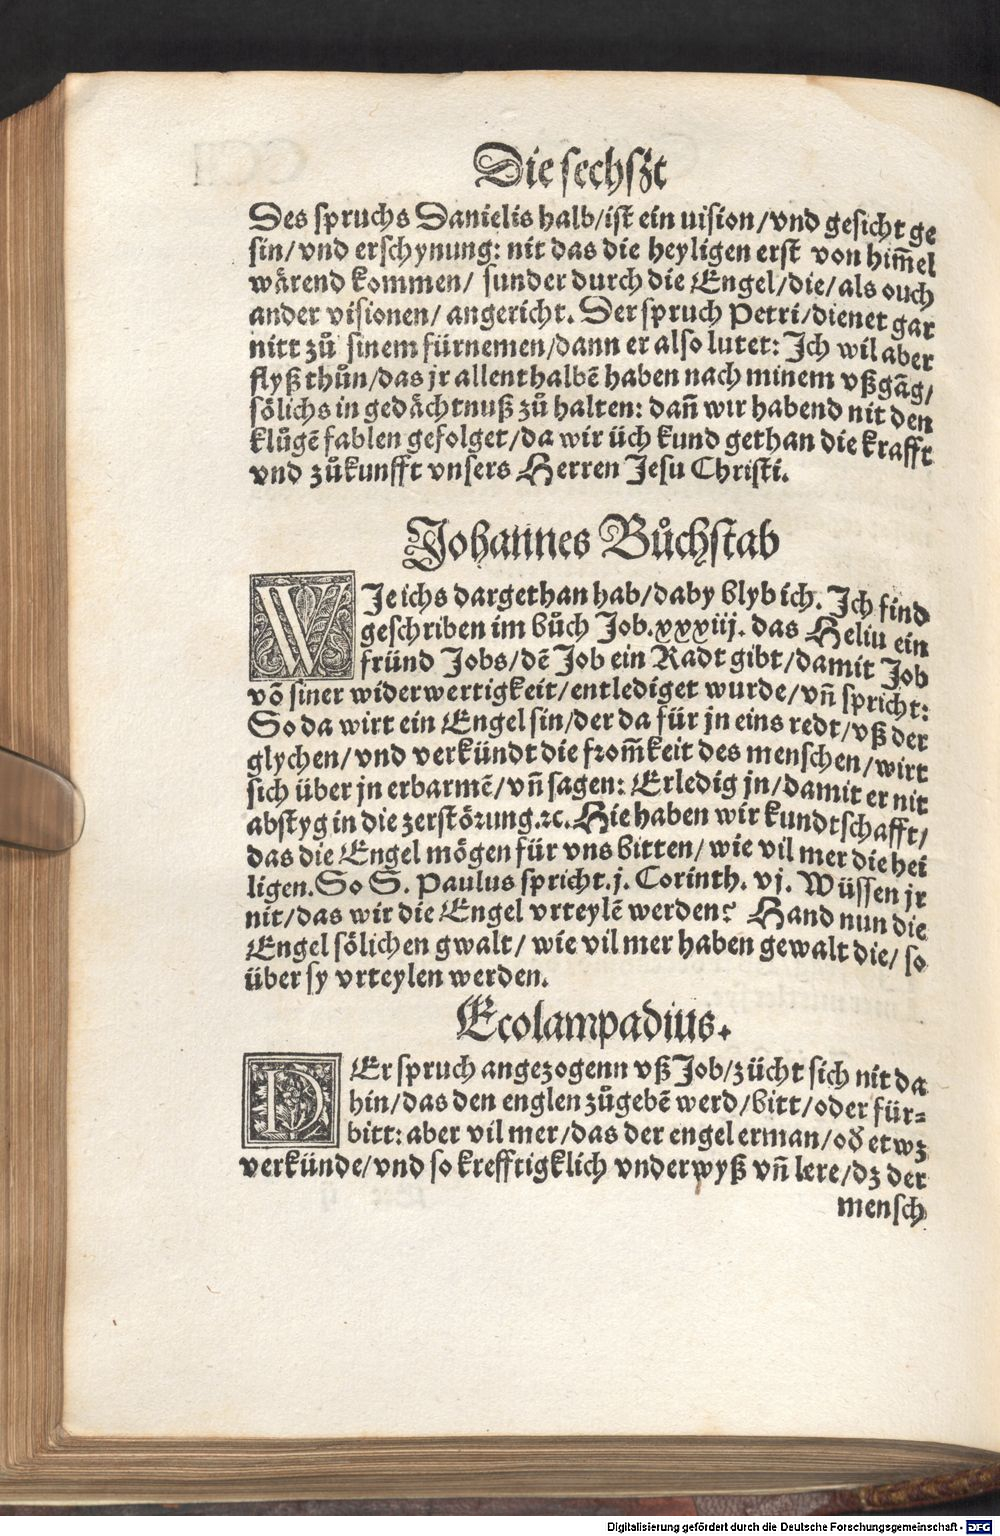 Die sechszt
Des spruchs Danielis halb/ist ein uision/vnd gesicht ge
sin/vnd erschynung: nit das die heyligen erst von him̄el
wårend kommen/ sunder durch die Engel/die/als ouch
ander visionen/ angericht. Der spruch Petri/dienet gar
nitt zů sinem fürnemen/dann er also lutet: Ich wil aber
flyß thůn/das jr allenthalbē haben nach minem vßgāg/
sölichs in gedåchtnuß zů halten: dañ wir habend nit den
klůgē fablen gefolget/da wir üch kund gethan die krafft
vnd zůkunfft vnsers Herren Jesu Christi.
Johannes Bůchstab
WJe ichs dargethan hab/daby blyb ich. Ich find
geschriben im bůch Job.xxxiij. das Heliu ein
fründ Jobs/dē Job ein Radt gibt/damit Job
vō siner widerwertigkeit/entlediget wurde/vñ spricht:
So da wirt ein Engel sin/der da für jn eins redt/vß der
glychen/vnd verkündt die from̄keit des menschen/wirt
sich über jn erbarmē/vñ sagen: Erledig jn/damit er nit
abstyg in die zerstörung.ꝛc. Hie haben wir kundtschafft/
das die Engel mögen für vns bitten/ wie vil mer die hei
ligen. So S. Paulus spricht.j. Corinth. vj. Wüssen jr
nit/das wir die Engel vrteylē werden? Hand nun die
Engel sölichen gwalt/ wie vil mer haben gewalt die/ so
über sy vrteylen werden.
Ecolampadius.
DEr spruch angezogenn vß Job/zücht sich nit da
hin/das den englen zůgebē werd/bitt/oder für-
bitt: aber vil mer/das der engel erman/oď etwz
verkünde/vnd so krefftigklich vnderwyß vñ lere/dz der
mensch
Digitalisierung gefördert durch die Deutsche Forschungsgemeinschaft - DFG